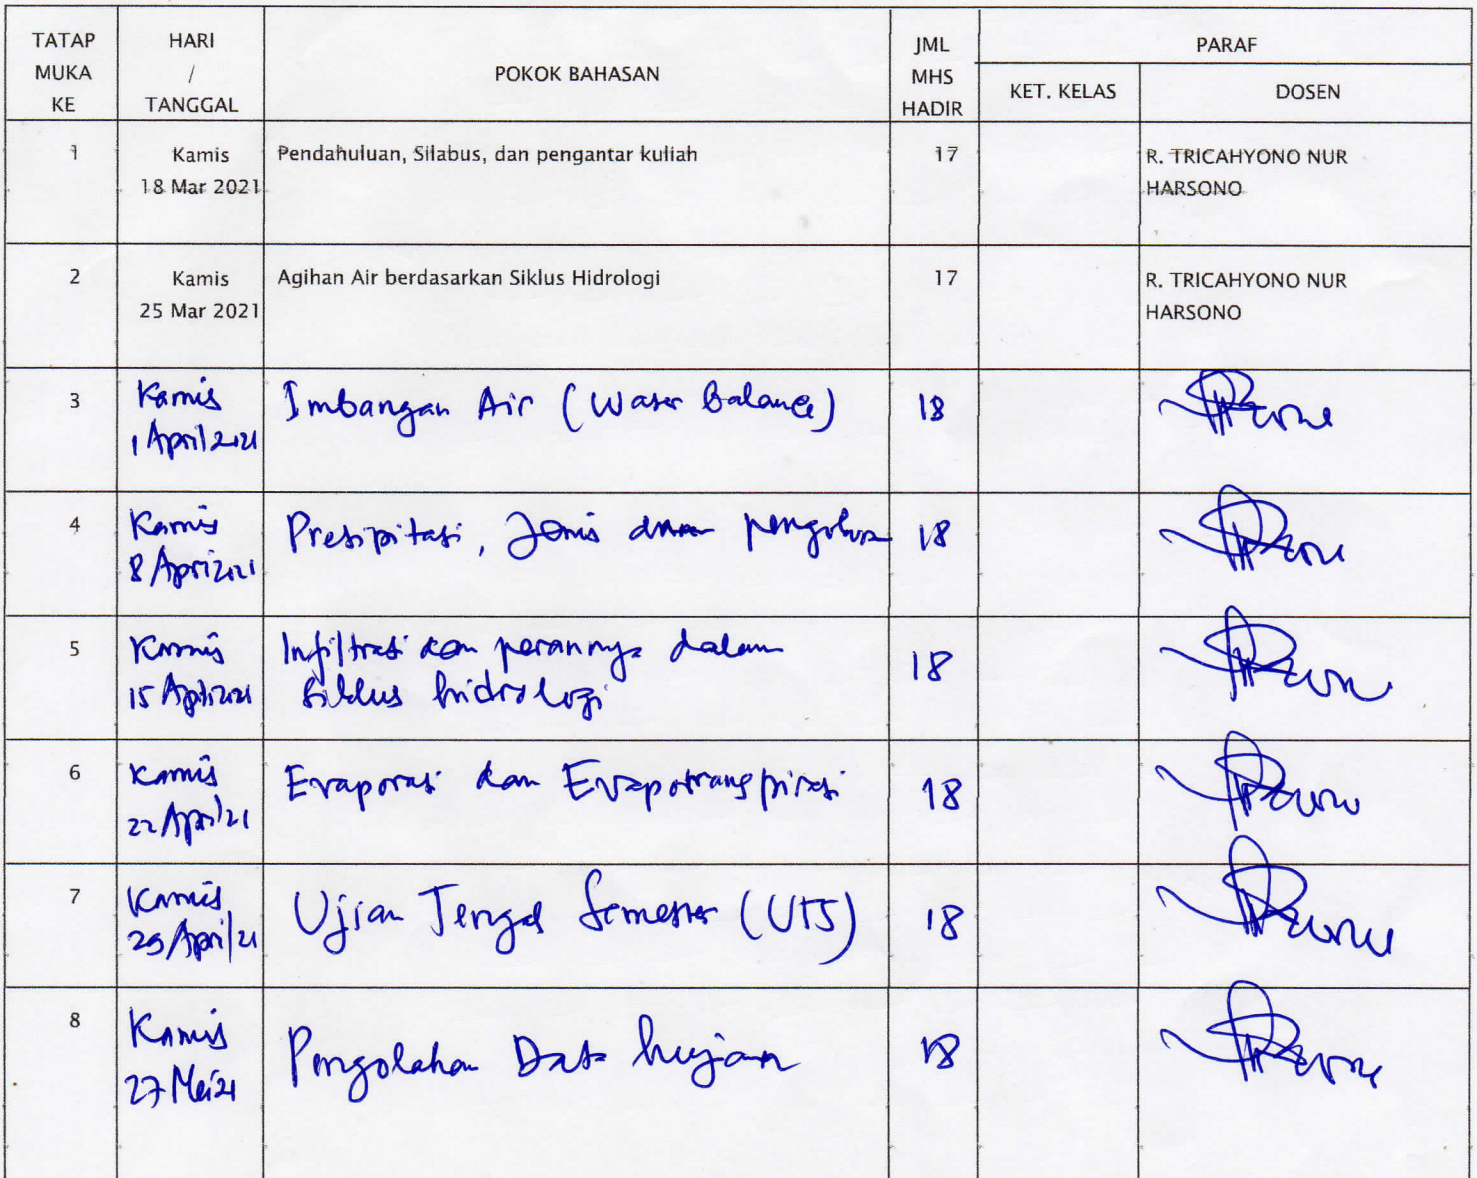 TATAP MUKA KE
HARI / TANGGAL
POKOK BAHASAN
JML MHS HADIR
PARAF
KET. KELAS
DOSEN
1
Kamis
18 Mar 2021
Pendahuluan, Silabus, dan pengantar kuliah
17
R. TRICAHYONO NUR
HARSONO
2
Kamis
25 Mar 2021
Agihan Air berdasarkan Siklus Hidrologi
17
R. TRICAHYONO NUR
HARSONO
3
Kamis
1 April 2021
Imbangan Air (Water Balance)
18
4
Kamis
8 Apri 2021
Presipitasi, Jenis dan
18
5
Kamis
15 Apri 2021
Infiltrasi dan perannya dalam
siklus hidrologi
18
6
Kamis
22 April 21
Evaporasi dan Evapotranspirasi
18
7
Kamis
29 April/21
Ujian Tengah Semester (UTS)
18
8
Kamis
27 Mei 21
Pengolahan Data hujan
18